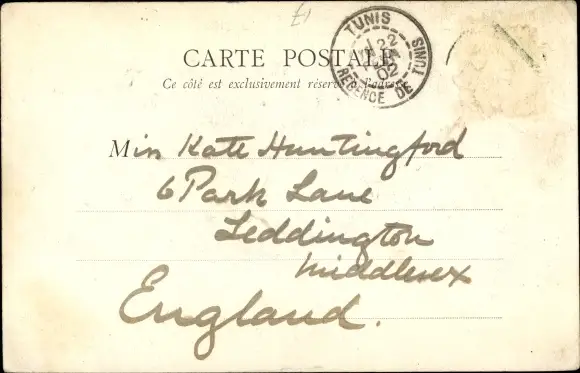 £1
CARTE POSTALE
Ce côté est exclusivement réservé
TUNIS 22 02 REGENCE DE TUNIS
Miss Kate Huntingford
6 Park Lane
Teddington
Middlesex
England.